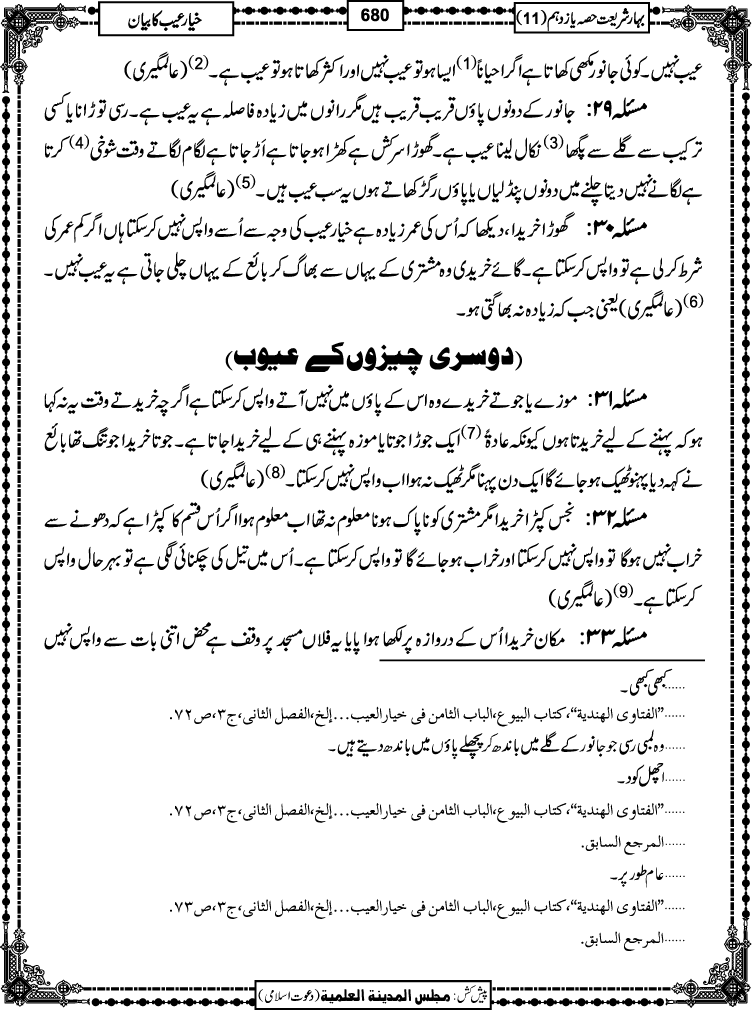 بہارِ شریعت حصہ یازدہم (11)
680
خیارِ عیب کا بیان
عیب نہیں۔ کوئی جانور مکھی کھاتا ہے اگر احیاناً (1) ایسا ہو تو عیب نہیں اور اکثر کھاتا ہو تو عیب ہے۔ (2) (عالمگیری)
مسئلہ ۲۹: جانور کے دونوں پاؤں قریب قریب ہیں مگر رانوں میں زیادہ فاصلہ ہے یہ عیب ہے۔ رسی توڑانا یا کسی
ترکیب سے گلے سے پگھا (3) نکال لینا عیب ہے۔ گھوڑا سرکش ہے کھڑا ہو جاتا ہے اَڑ جاتا ہے لگام لگاتے وقت شوخی (4) کرتا
ہے لگانے نہیں دیتا چلنے میں دونوں پنڈلیاں یا پاؤں رگڑ کھاتے ہوں یہ سب عیب ہیں۔ (5) (عالمگیری)
مسئلہ ۳۰: گھوڑا خریدا، دیکھا کہ اُس کی عمر زیادہ ہے خیارِ عیب کی وجہ سے اُسے واپس نہیں کرسکتا ہاں اگر کم عمر کی
شرط کر لی ہے تو واپس کرسکتا ہے۔ گائے خریدی وہ مشتری کے یہاں سے بھاگ کر بائع کے یہاں چلی جاتی ہے یہ عیب نہیں۔
(6) (عالمگیری) یعنی جب کہ زیادہ نہ بھاگتی ہو۔
(دوسری چیزوں کے عیوب)
مسئلہ ۳۱: موزے یا جوتے خریدے وہ اس کے پاؤں میں نہیں آتے واپس کرسکتا ہے اگرچہ خریدتے وقت یہ نہ کہا
ہو کہ پہننے کے لیے خریدتا ہوں کیونکہ عادۃً (7) ایک جوڑا جوتا یا موزہ پہننے ہی کے لیے خریدا جاتا ہے۔ جوتا خریدا جو تنگ تھا بائع
نے کہہ دیا پہنو ٹھیک ہو جائے گا ایک دن پہنا مگر ٹھیک نہ ہوا اب واپس نہیں کرسکتا۔ (8) (عالمگیری)
مسئلہ ۳۲: نجس کپڑا خریدا مگر مشتری کو ناپاک ہونا معلوم نہ تھا اب معلوم ہوا اگر اُس قسم کا کپڑا ہے کہ دھونے سے
خراب نہیں ہوگا تو واپس نہیں کرسکتا اور خراب ہو جائے گا تو واپس کرسکتا ہے۔ اُس میں تیل کی چکنائی لگی ہے تو بہر حال واپس
کرسکتا ہے۔ (9) (عالمگیری)
مسئلہ ۳۳: مکان خریدا اُس کے دروازہ پر لکھا ہوا پایا یہ فلاں مسجد پر وقف ہے محض اتنی بات سے واپس نہیں
......کبھی کبھی۔
......”الفتاوی الھندیۃ“، کتاب البیوع، الباب الثامن فی خیار العیب...إلخ، الفصل الثانی، ج۳، ص۷۲.
......وہ لمبی رسی جو جانور کے گلے میں باندھ کر پچھلے پاؤں میں باندھ دیتے ہیں۔
......اچھل کود۔
......”الفتاوی الھندیۃ“، کتاب البیوع، الباب الثامن فی خیار العیب...إلخ، الفصل الثانی، ج۳، ص۷۲.
......المرجع السابق.
......عام طور پر۔
......”الفتاوی الھندیۃ“، کتاب البیوع، الباب الثامن فی خیار العیب...إلخ، الفصل الثانی، ج۳، ص۷۳.
......المرجع السابق.
پیش کش: مجلس المدینۃ العلمیۃ (دعوتِ اسلامی)